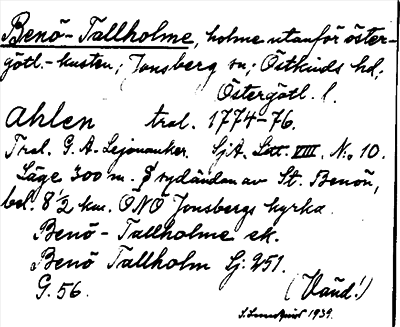 Benö-Tallholme, holme utanför öster-
götl.-kusten; Jonsberg sn; Östkinds hd.
Östergötl. l.
Ahlen trol. 1774-76.
Trol. G. A. Lejonanker. SjA. Litt. VIII N:o 10.
Läge 300 m. S sydändan av St. Benön,
bel. 8 1/2 km. ONO Jonsbergs kyrka.
Benö-Tallholme ek.
Benö Tallholm Sj. 251.
G. 56. (Vaud!)
S. Lundqvist 1939.